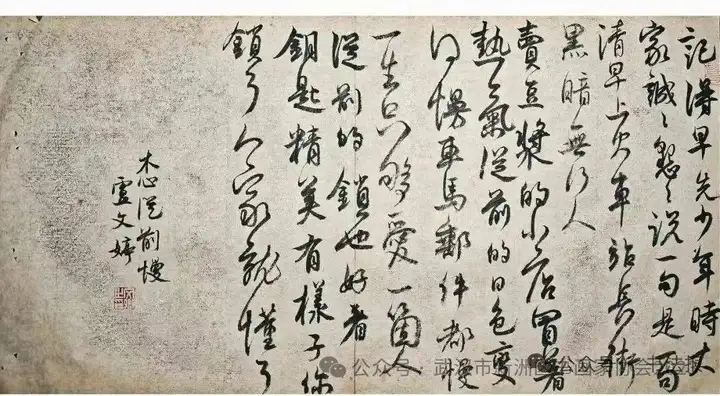 記得早先少年時大
家誠々懇々説一句是一句
清早上火車站長街
黑暗無行人
賣豆漿的小店冒着
熱氣從前的日色變
得慢車馬郵件都慢
一生只夠愛一箇人
從前的鎖也好看
鈅匙精美有樣子你
鎖了人家就懂了
木心從前慢
盧文婷
公众号·武汉市新洲区